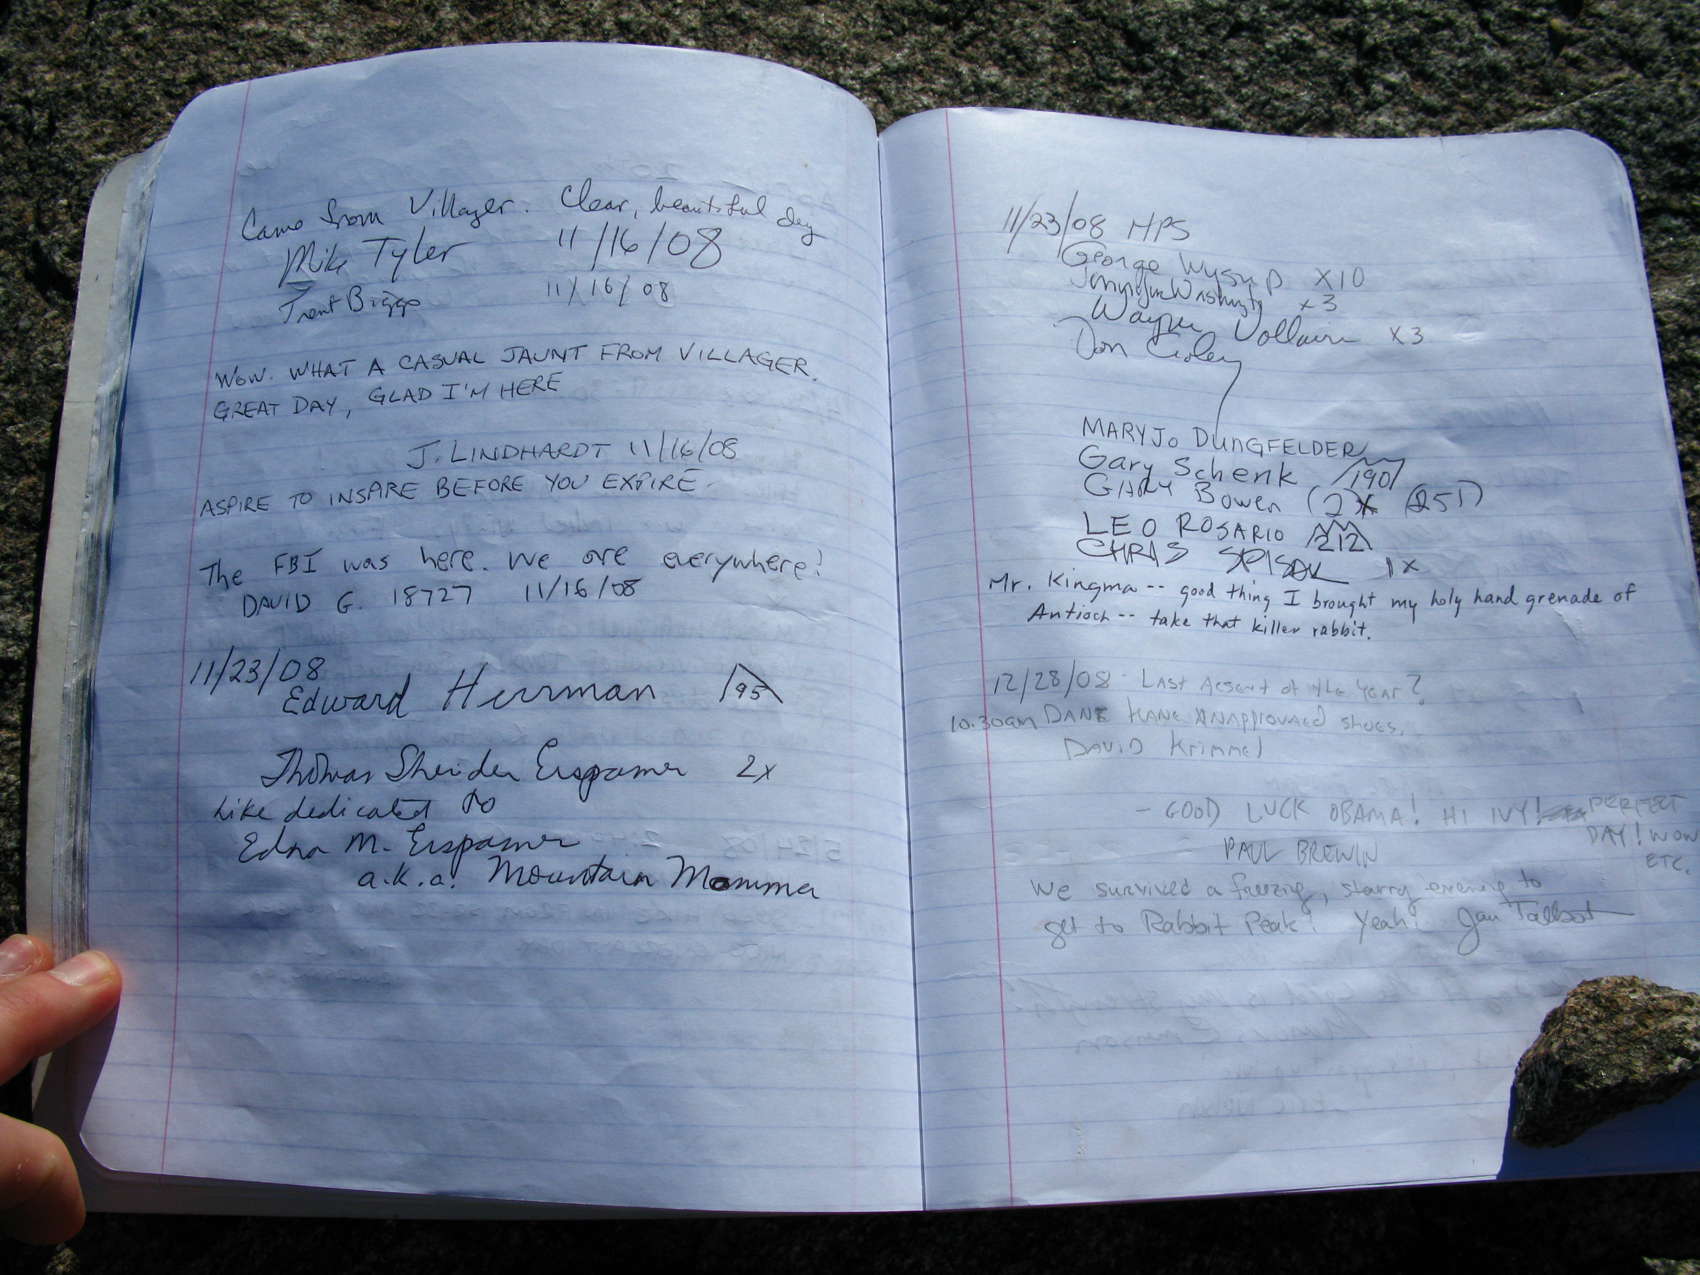 Came from Villager. Clear, beautiful day
Mike Tyler 11/16/08
Trent Biggs 11/16/08
WOW. WHAT A CASUAL JAUNT FROM VILLAGER.
GREAT DAY, GLAD I'M HERE
J. LINDHARDT 11/16/08
ASPIRE TO INSPIRE BEFORE YOU EXPIRE.
The FBI was here. We are everywhere!
DAVID G. 18727 11/16/08
11/23/08
Edward Herrman 195
Thomas Sheider Erspamer 2x
Hike dedicated to
Edna M. Erspamer
a.k.a. Mountain Momma
11/23/08 HPS
George Wysup X10
Washington x3
Wayne Vollaire x3
Don
MARY JO DUNGFELDER
Gary Schenk 190
GARY Bowen (2)x (251)
LEO ROSARIO 212
CHRIS SPISAK 1x
Mr. Kingma -- good thing I brought my holy hand grenade of
Antioch -- take that killer rabbit.
12/28/08 - LAST Ascent of the Year?
10:30am DANE KANE UNAPPROVAED shoes.
DAVID Krimmel
- GOOD LUCK OBAMA! HI IVY! PERFECT
DAY! WOW
ETC.
PAUL BREWIN
We survived a freezing, starry evening to
get to Rabbit Peak! Yeah! Jan Talbot